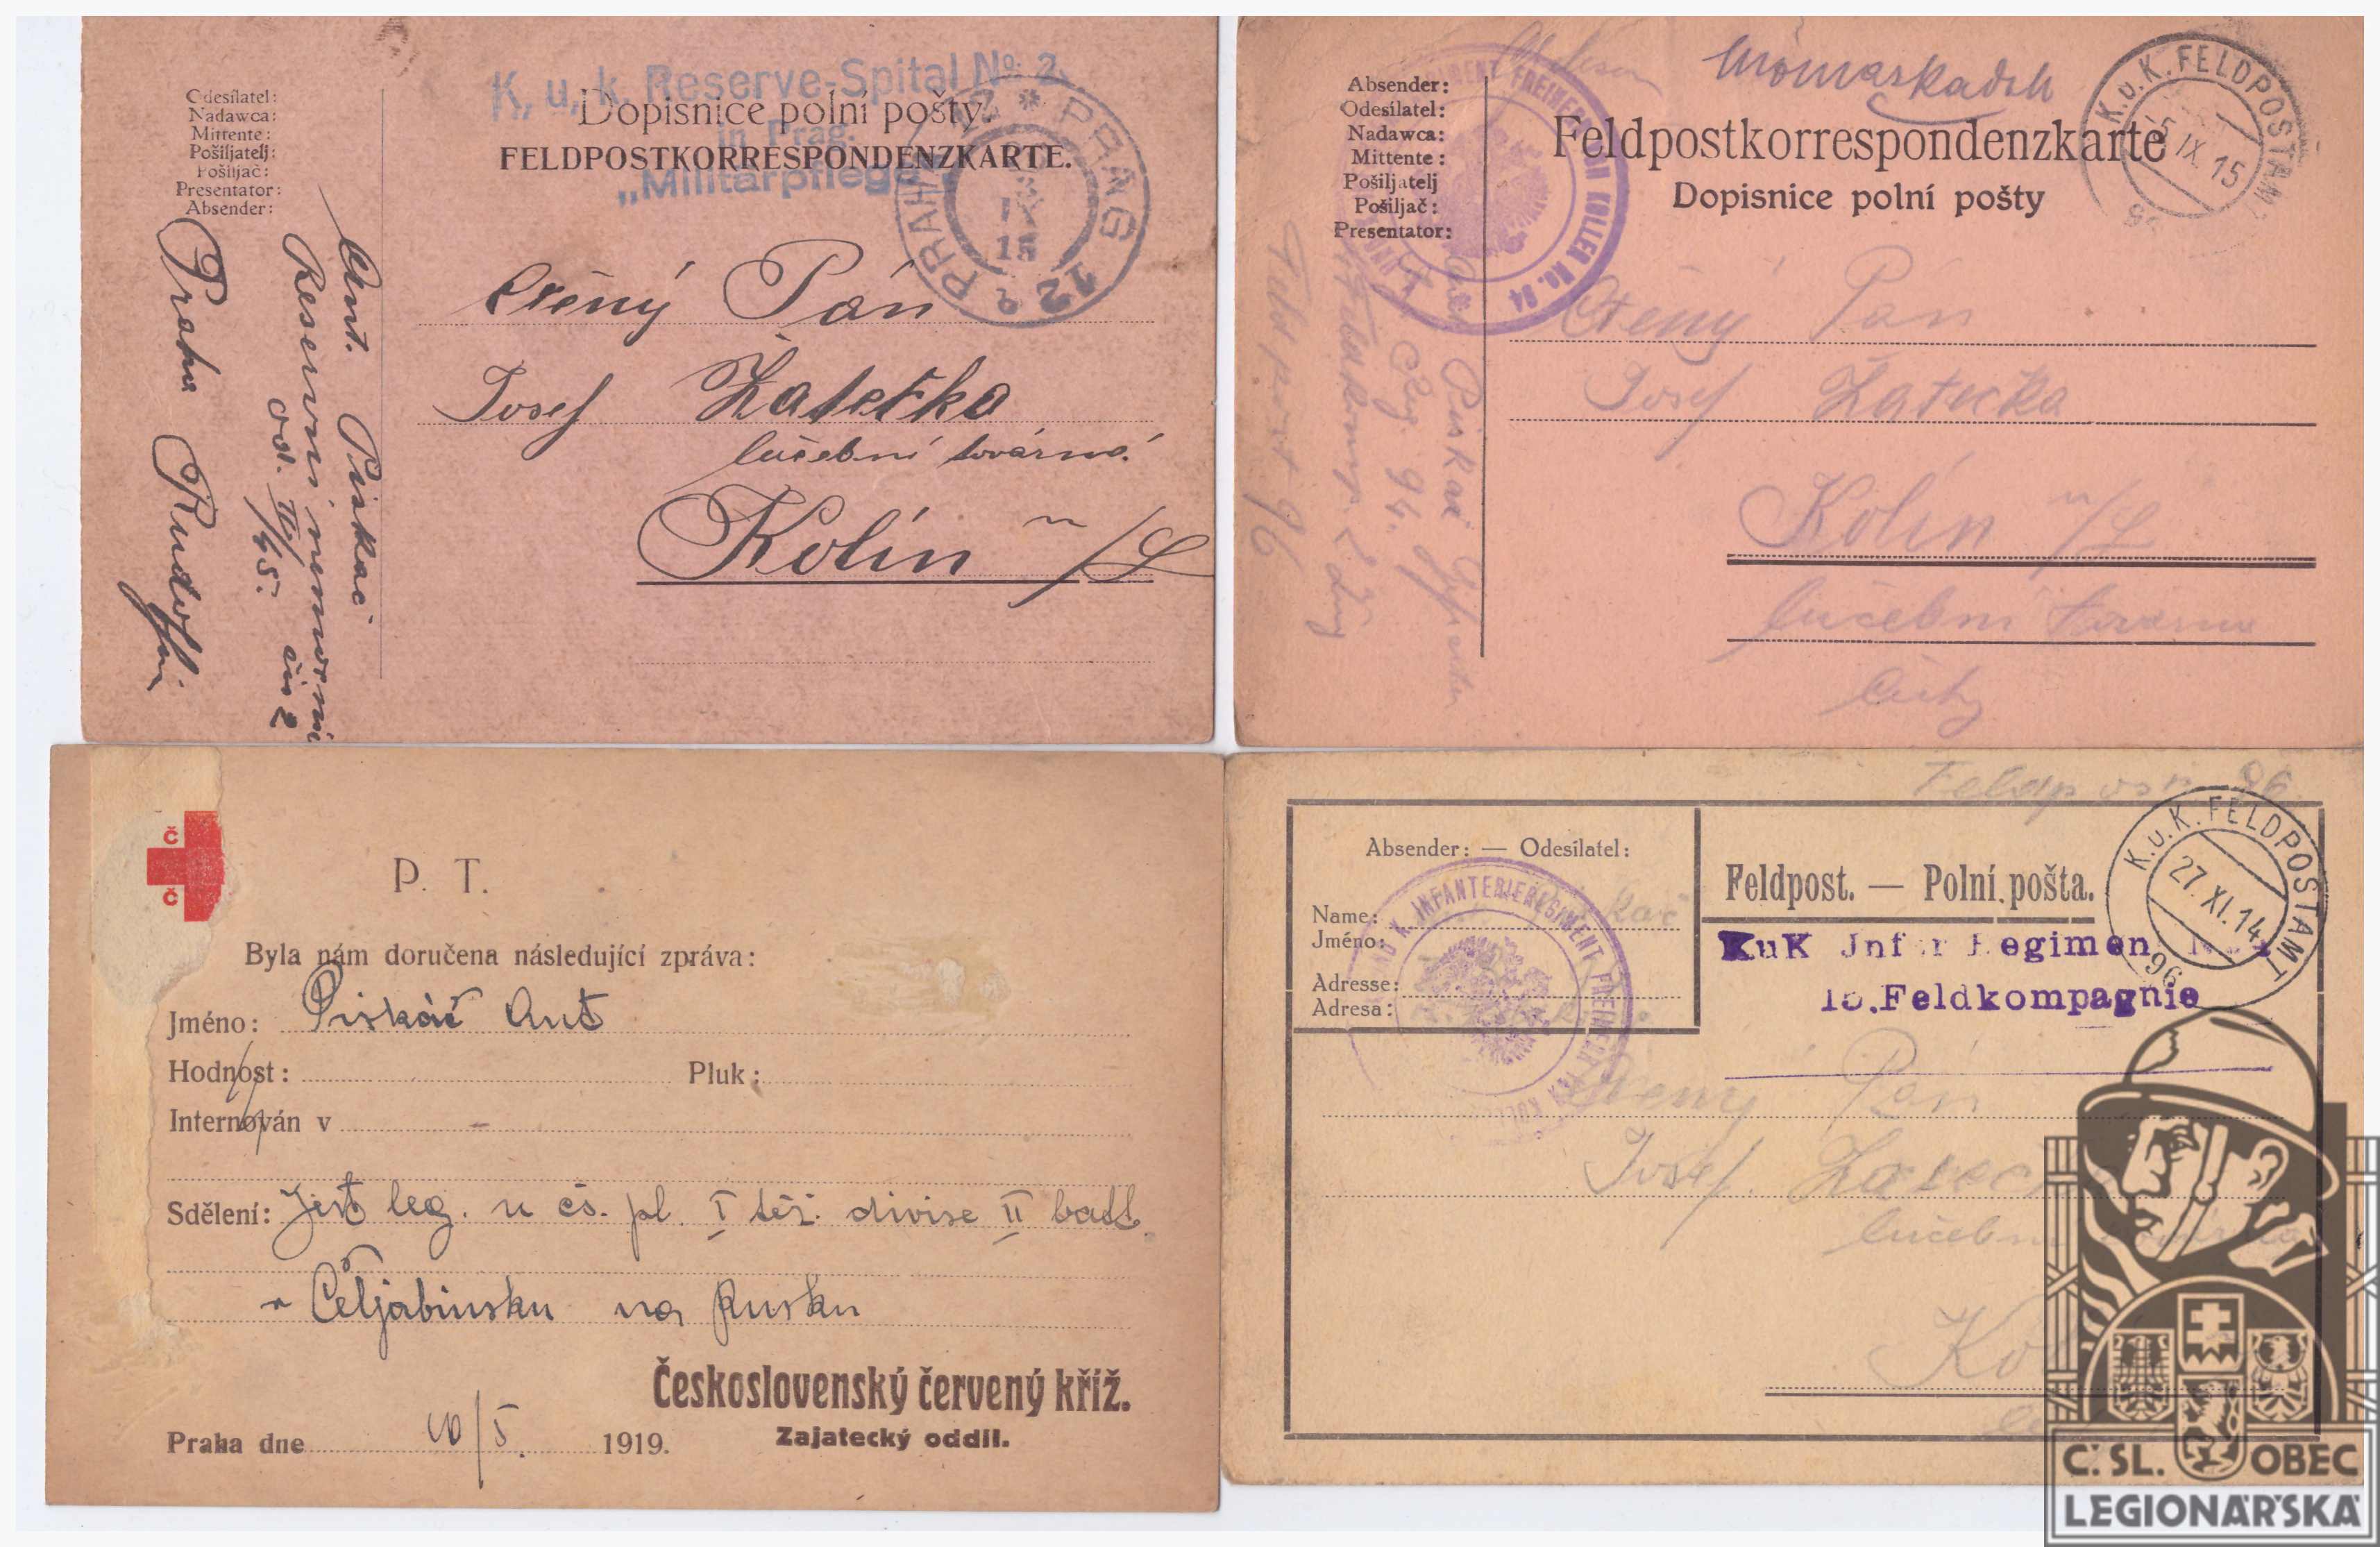 K. u. k. Reserve-Spital No. 2.
in Prag.
„Militärpflege"
Dopisnice polní pošty.
FELDPOSTKORRESPONDENZKARTE.
Odesílatel:
Nadawca:
Mittente:
Pošiljatelj:
Pošiljač:
Presentator:
Absender:
PRAG
IX
15
PRAHA
12
Ant. Piskač
Reservní nemocnice
odd. II/45. čís 2
Praha Rudolfin
Ctěný Pán
Josef Žatečka
lučební továrna
Kolín n/L
Absender:
Odesílatel:
Nadawca:
Mittente:
Pošiljatelj
Pošiljač:
Presentator:
Feldpostkorrespondenzkarte
Dopisnice polní pošty
K.u.K. FELDPOSTAMT
5 IX. 15
FREIHERR KOLLER No. 94
Piskač
Reg. 94.
Feldpost 96
Ctěný Pán
Josef Žatečka
Kolín n/L
lučební továrna
Čechy
č
č
P. T.
Byla nám doručena následující zpráva:
Jméno: Piskáč Ant
Hodnost: Pluk:
Internován v
Sdělení: Jest leg. u čs. pl. I těž. divise II batt.
v Čeljabinsku na Rusku
Československý červený kříž.
Zajatecký oddíl.
Praha dne 10/5. 1919.
Feldpost 96.
Absender: — Odesílatel:
Name:
Jméno:
Adresse:
Adresa:
K. INFANTERIEREGIMENT FREIHERR KOLLER
Feldpost. — Polní pošta.
K.u.K. FELDPOSTAMT
27. XI. 14
96
KuK Infter Regiment
15.Feldkompagnie
Ctěný Pán
Josef Žateč
lučební
Kol
Č. SL. OBEC
LEGIONÁŘSKÁ